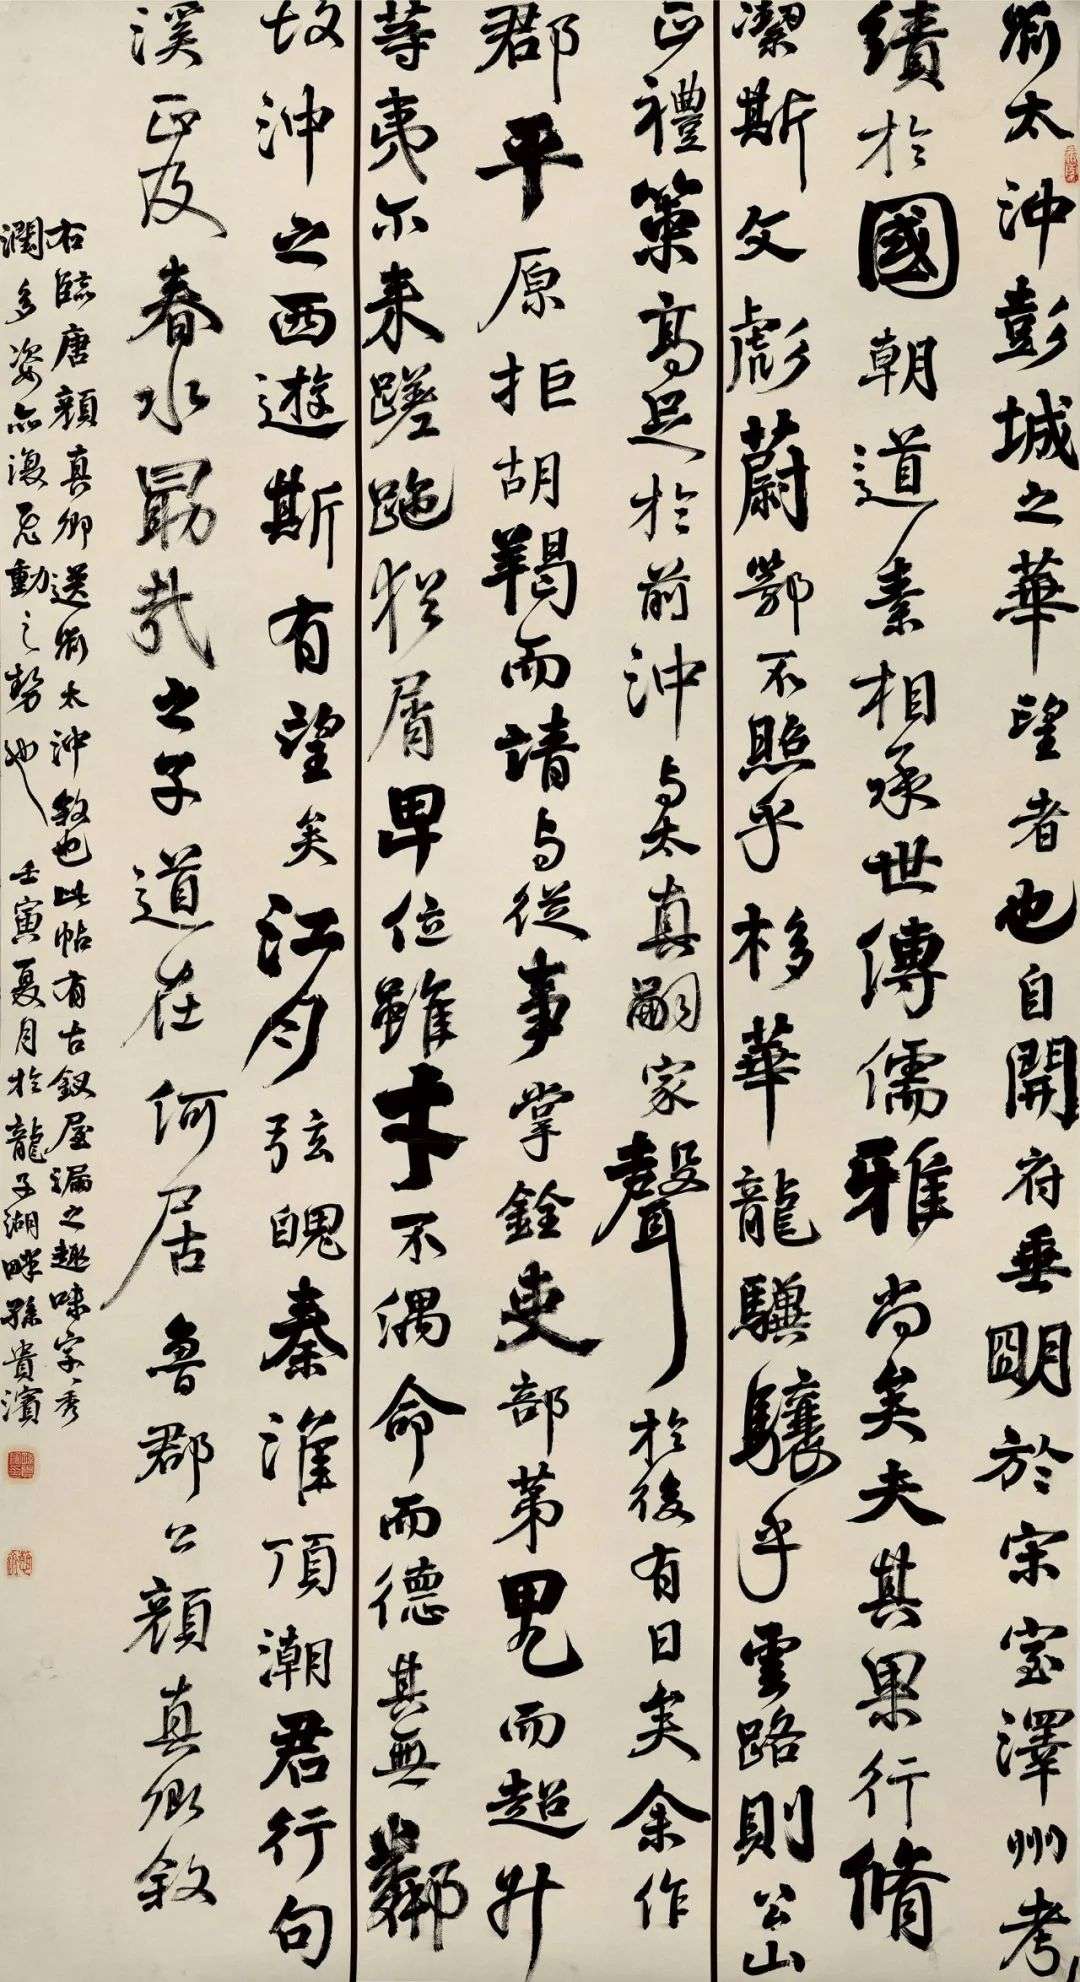 劉太沖彭城之華望者也自開府垂明於宋室澤州考
績於國朝道素相承世傳儒雅尚矣夫其果行脩
潔斯文彪蔚鄂不照乎移華龍驥驤乎雲路則公山
正禮策高足於前沖與太真嗣家聲於後有日矣余作
郡平原拒胡羯而請與從事掌銓吏部第甲乙而超升
等夷尓来蹉跎猶屑卑位雖才不偶命而德其無鄰
故沖之西遊斯有望矣江月弦魄秦淮頂潮君行句
溪正及春水勗哉之子道在何居魯郡公顔真卿敘
右臨唐顔真卿送劉太沖敘也此帖有古釵屋漏之趣味字字秀
潤多姿亦復飛動之勢也 壬寅夏月於龍子湖畔孫貴濱